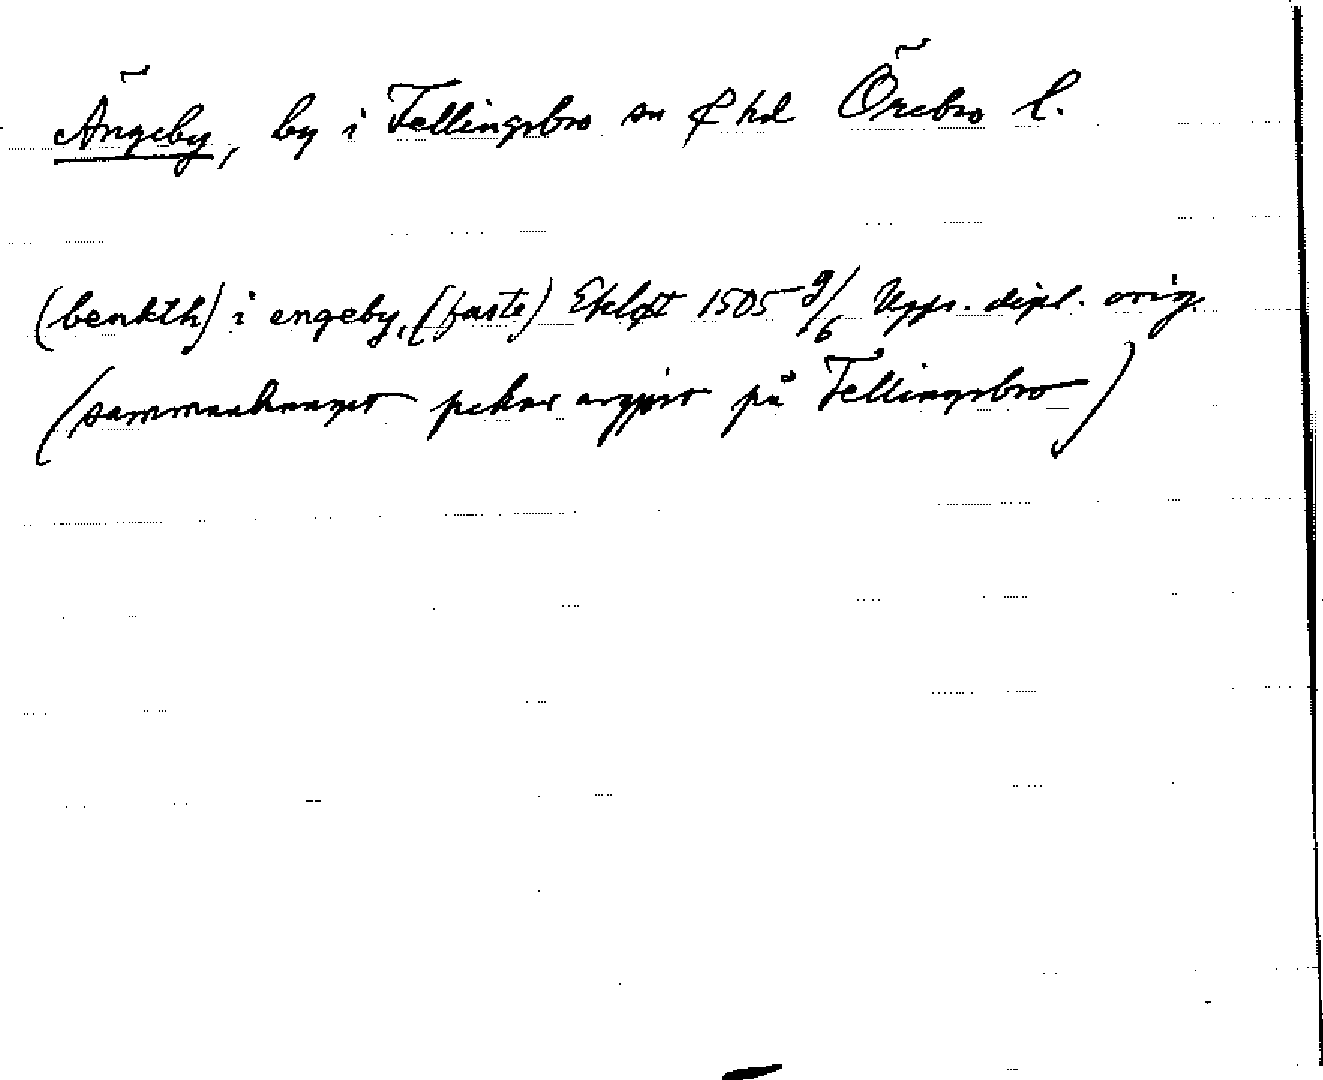 Ängeby, by i Fellingsbro sn & hd Örebro l.
(benkth) i engeby, (faste) Ekeløt 1505 9/6 Upps. dipl. orig.
(sammanhanget pekar avgjort på Fellingsbro)